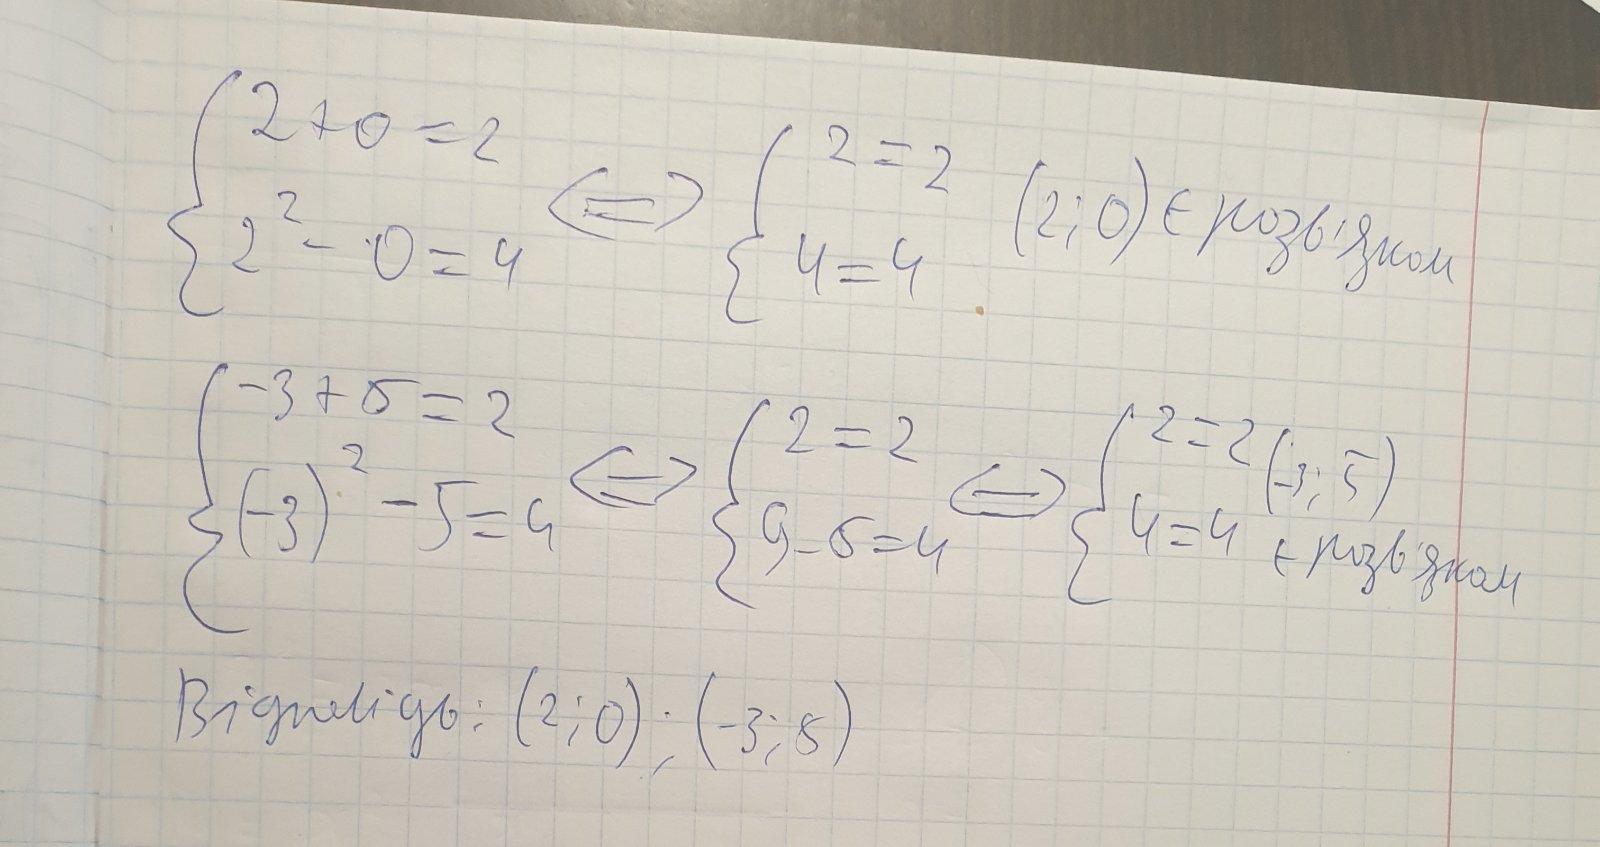 { 2+0=2
2² - 0 = 4 <=> { 2=2
4=4 (2; 0) є розв'язком
{ -3+5=2
(-3)² - 5 = 4 <=> { 2=2
9-5=4 <=> { 2=2
4=4 (-3; 5)
є розв'язком
Відповідь: (2; 0); (-3; 5)